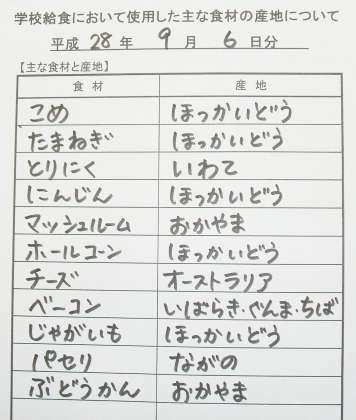 学校給食において使用した主な食材の産地について
平成 28 年 9 月 6 日分
【主な食材と産地】
食材 産地
こめ ほっかいどう
たまねぎ ほっかいどう
とりにく いわて
にんじん ほっかいどう
マッシュルーム おかやま
ホールコーン ほっかいどう
チーズ オーストラリア
ベーコン いばらき・ぐんま・ちば
じゃがいも ほっかいどう
パセリ ながの
ぶどうかん おかやま